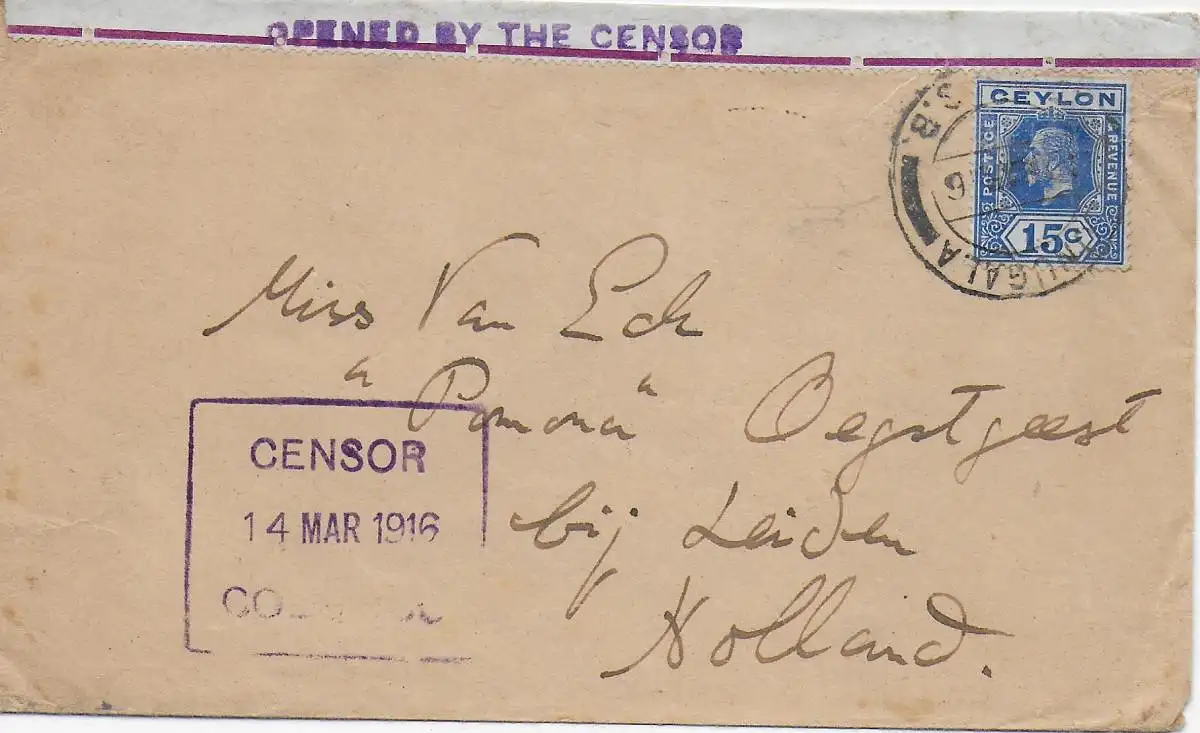 OPENED BY THE CENSOR
CEYLON
POSTAGE
REVENUE
15c
S.B.
Miss Van Eck
"Pomona" Oegstgeest
bij Leiden
Holland.
CENSOR
14 MAR 1916